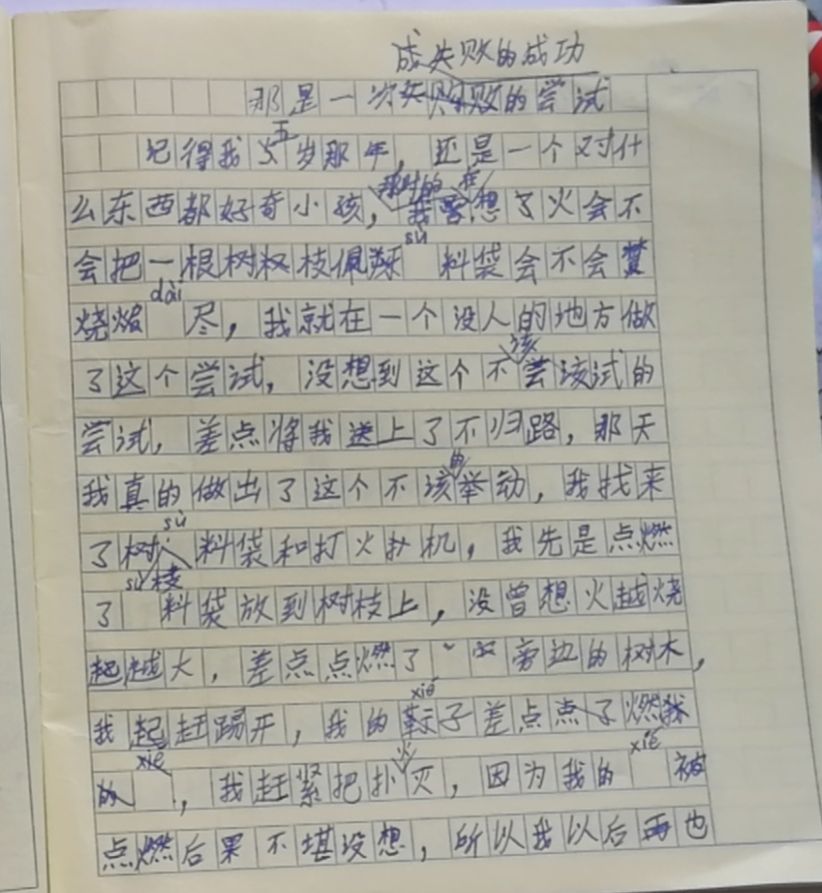 成失败的成功
那是一次失败的尝试
记得我五岁那年，还是一个对什
么东西都好奇小孩，那时的我在想了火会不
会把一根树杈枝 sù料袋会不会
烧 dài尽，我就在一个没人的地方做
了这个尝试，没想到这个不该尝该试的
尝试，差点将我送上了不归路，那天
我真的做出了这个不该的举动，我找来
了树枝sù料袋和打火扑机，我先是点燃
了sù料袋放到树枝上，没曾想火越烧
越大，差点点燃了旁边的树木，
我起赶踢开，我的xié子差点点了燃我
的xié，我赶紧把火扑灭，因为我的xié被
点燃后果不堪没想，所以我以后再也